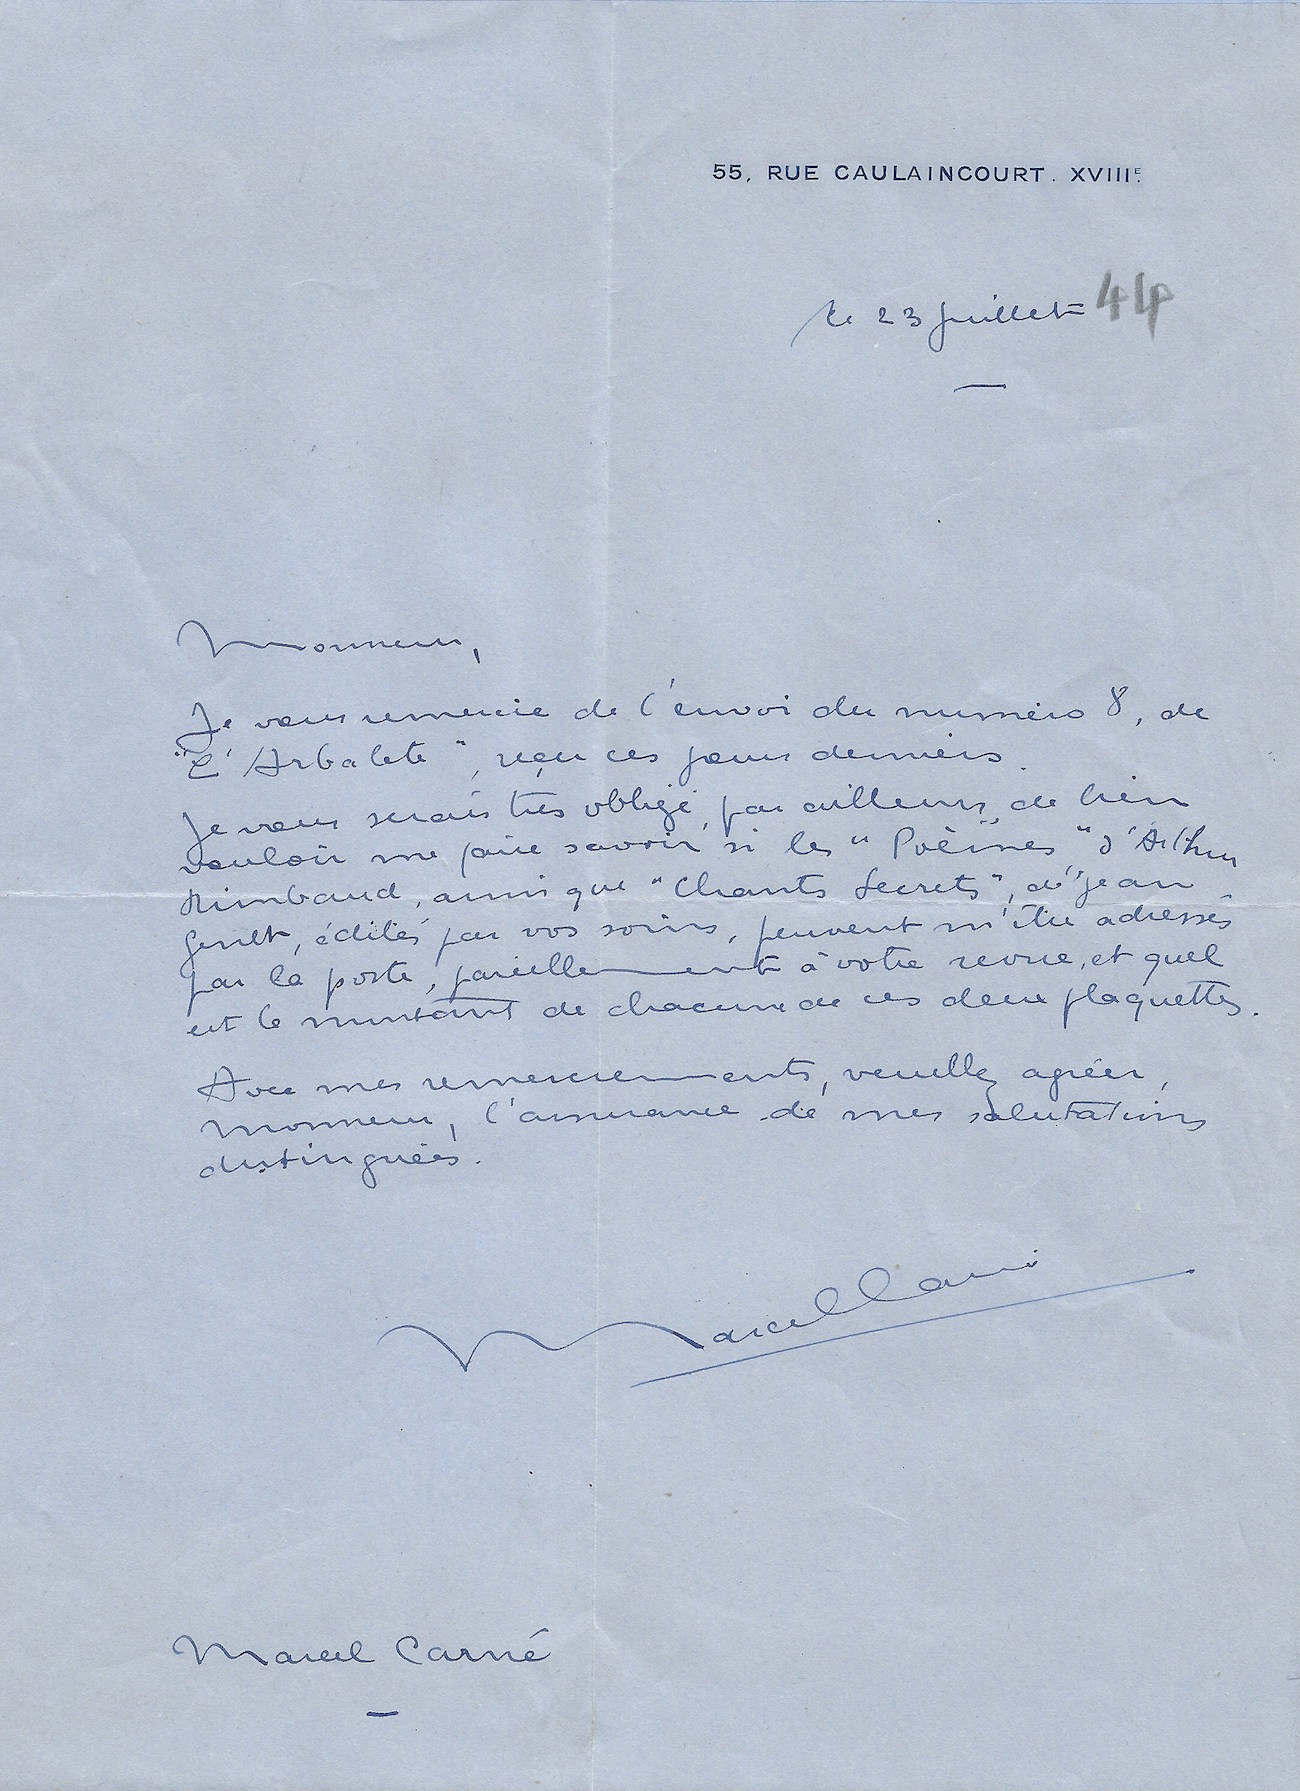 55, RUE CAULAINCOURT. XVIIIE.
le 23 juillet 44
Monsieur,
Je vous remercie de l'envoi du numéro 8, de
"L'Arbalète", reçu ces jours derniers.
Je vous serais très obligé, par ailleurs, de bien
vouloir me faire savoir si les "Poèmes" d'Arthur
Rimbaud, ainsi que "Chants Secrets", de Jean
Genet, édités par vos soins, peuvent m'être adressés
par la poste, pareillement à votre revue, et quel
est le montant de chacune de ces deux plaquettes.
Avec mes remerciements, veuillez agréer,
Monsieur, l'assurance de mes salutations
distinguées.
Marcel Carné
Marcel Carné